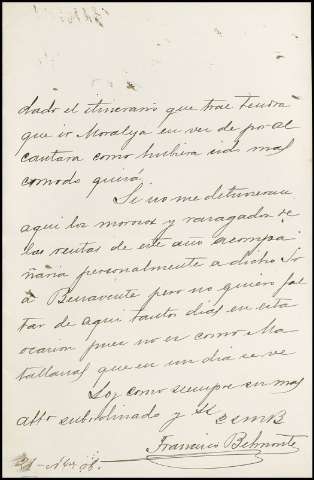 dado el itinerario que trae tendra
que ir Moraleja en vez de por al
cantara como hubiera sido mas
comodo quizá.
Si no me detuvieran
aqui los morosos y rezagados de
las rentas de este año acompa
ñaria personalmente a dicho Sr
a Benavente pero no quiero fal
tar de aqui tantos dias en esta
ocasion pues no es como Ma
tallanas que en un dia se ve
Soy como siempre su mas
afto subordinado y SS
QSMB
Francisco Belmonte